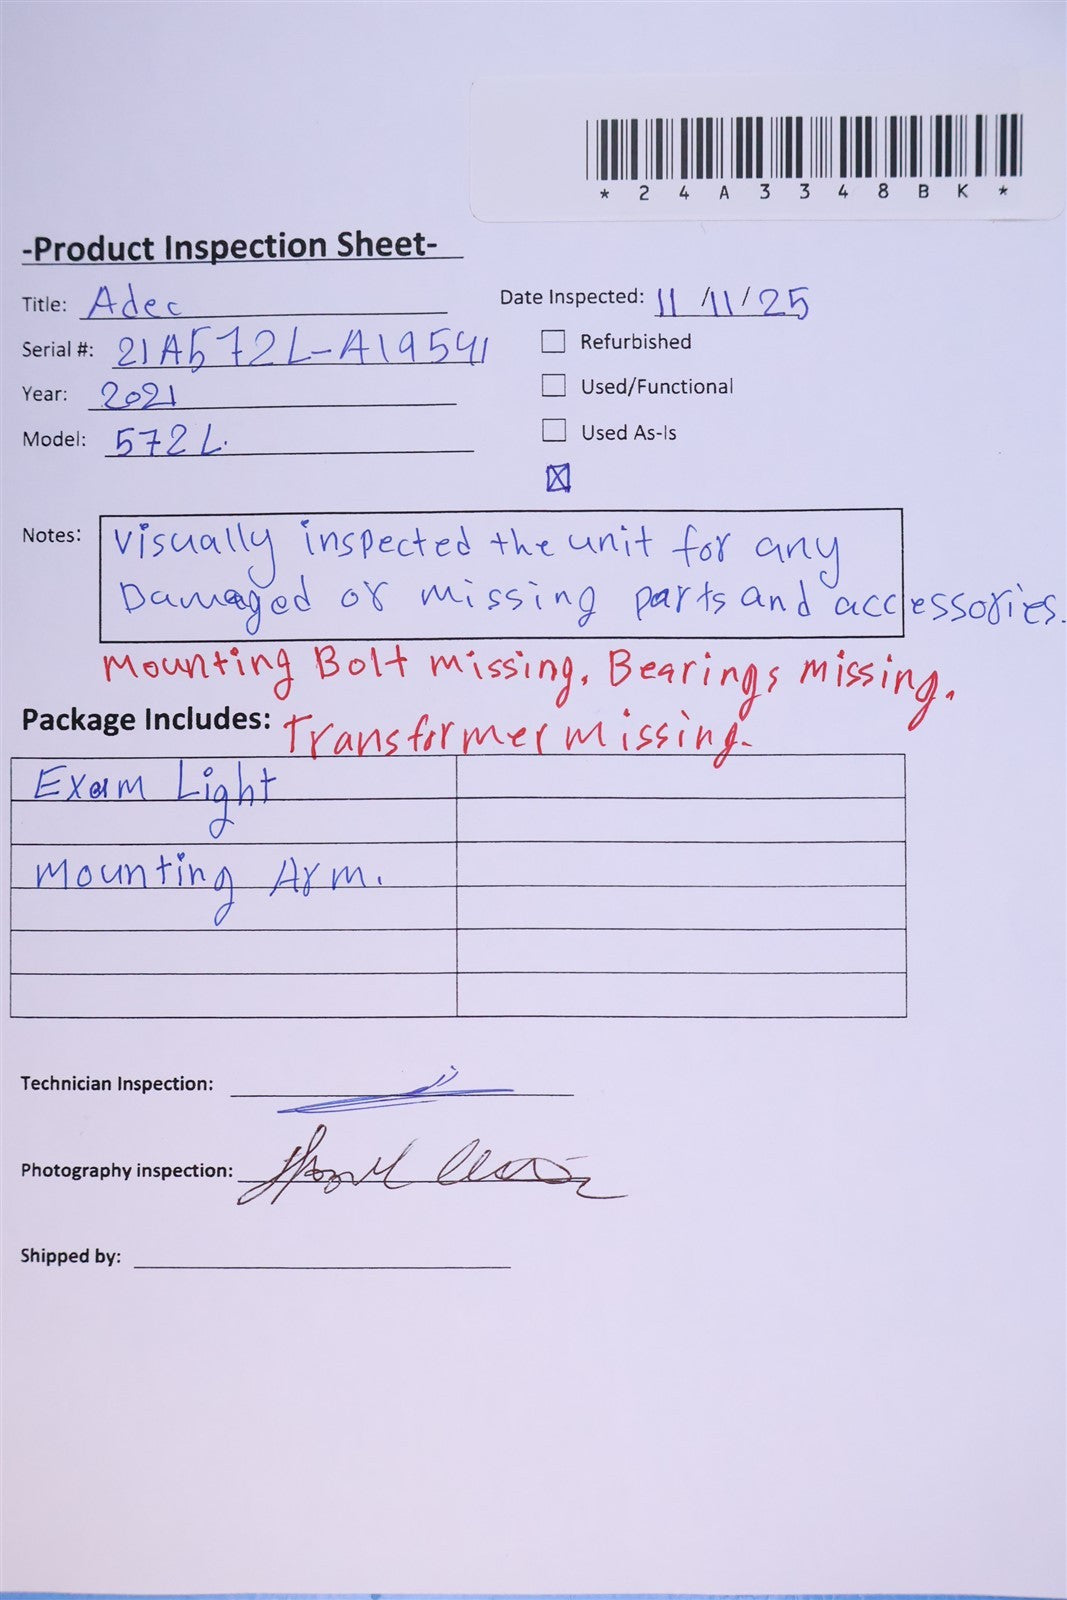 *24A3348BK*
-Product Inspection Sheet-
Title: Adec
Date Inspected: 11/11/25
Serial #: 21A572L-A19541
Refurbished
Year: 2021
Used/Functional
Model: 572L.
Used As-Is
Notes: Visually inspected the unit for any
Damaged or missing parts and accessories.
Mounting Bolt missing. Bearings missing.
Package Includes: Transformer missing.
Exam Light
Mounting Arm.
Technician Inspection:
Photography inspection:
Shipped by: